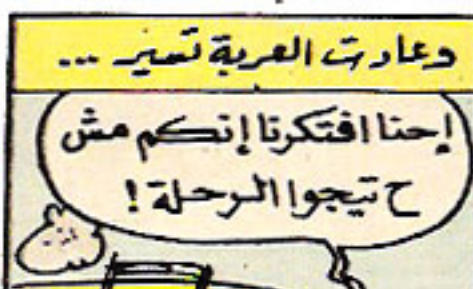 وعادت العربة تسير ...
إحنا افتكرنا إنكم مش
ح تيجوا الرحلة !